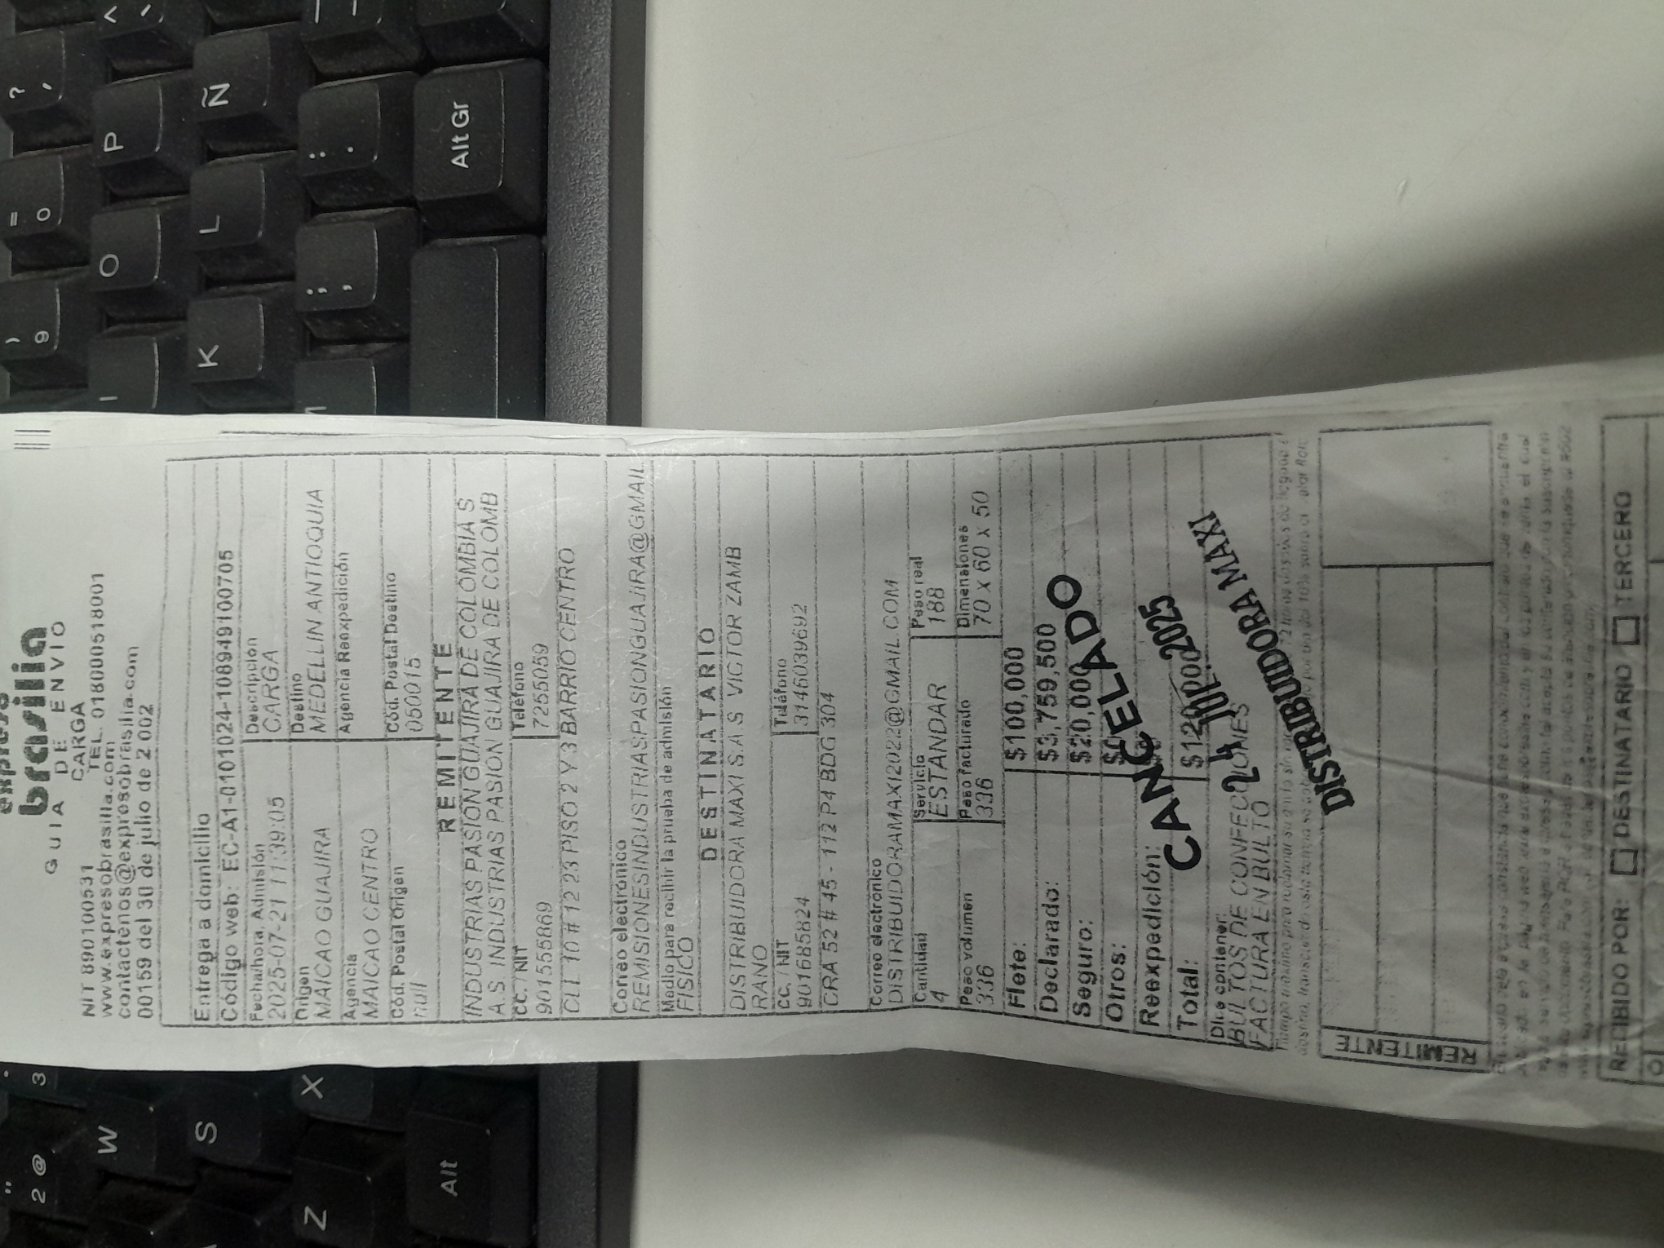 expreso
brasilia
GUIA DE ENVIO
CARGA
NIT 890100531 TEL. 0180000518001
www.expresobrasilia.com
contactenos@expresobrasilia.com
00159 del 30 de julio de 2002
Entrega a domicilio
Código web: EC-A1-0101024-108949100705
Fecha/hora. Admisión Descripción
2025-07-21 11:39:05 CARGA
Origen Destino
MAICAO GUAJIRA MEDELLIN ANTIOQUIA
Agencia Agencia Reexpedición
MAICAO CENTRO
Cód. Postal Origen Cód. Postal Destino
null 050015
REMITENTE
INDUSTRIAS PASION GUAJIRA DE COLOMBIA S
A S INDUSTRIAS PASION GUAJIRA DE COLOMB
CC. / NIT Teléfono
901555869 7255059
CLL 10 # 12 23 PISO 2 Y 3 BARRIO CENTRO
Correo electrónico
REMISIONESINDUSTRIASPASIONGUAJIRA@GMAIL
Medio para recibir la prueba de admisión
FISICO
DESTINATARIO
DISTRIBUIDORA MAXI S.A S VICTOR ZAMB
RANO
CC. / NIT Teléfono
901685824 3146039692
CRA 52 # 45 - 112 P4 BDG 304
Correo electrónico
DISTRIBUIDORAMAXI2022@GMAIL.COM
Cantidad Servicio Peso real
4 ESTANDAR 188
Peso volumen Peso facturado Dimensiones
336 336 70 x 60 x 50
Flete: $100,000
Declarado: $3,759,500
Seguro: $20,000
Otros:
Reexpedición:
Total: $120,000
CANCELADO
24 JUL. 2025
DISTRIBUIDORA MAXI
Dice contener:
BULTOS DE CONFECCIONES
FACTURA EN BULTO
REMITENTE
RECIBIDO POR: DESTINATARIO TERCERO
? ,
= 0
) 9
^
P
O
I
Ñ
L
K
: .
; ,
Alt Gr
" 2 @
3
W
S
X
Z
Alt